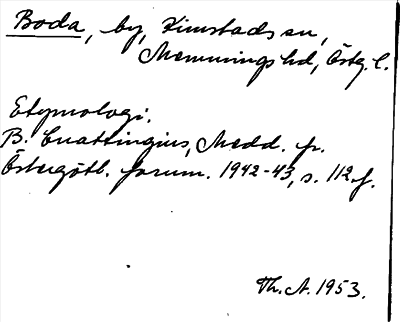 Boda, by, Kimstads sn,
Memmings hd, Östg. l.
Etymologi.
B. Cnattingius, Medd. fr.
Östergötl. fornm. 1942-43, s. 112 f.
Th. A. 1953.